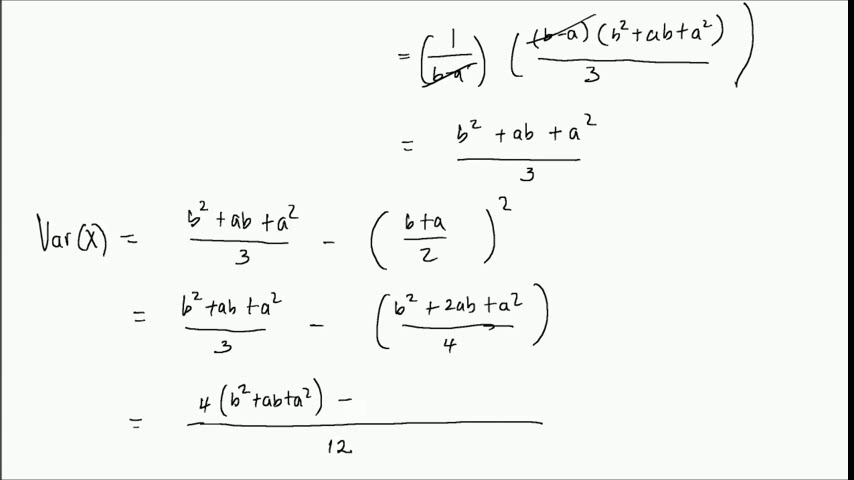 = (1/(b-a)) ((b-a)(b²+ab+a²)/3)
= (b² + ab + a²)/3
Var(X) = (b² + ab + a²)/3 - ((b+a)/2)²
= (b² + ab + a²)/3 - ((b² + 2ab + a²)/4)
= (4(b²+ab+a²) -)/12